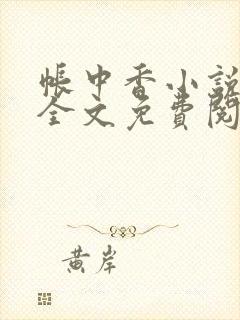 帳中香小說
全文免費閱
黃岸